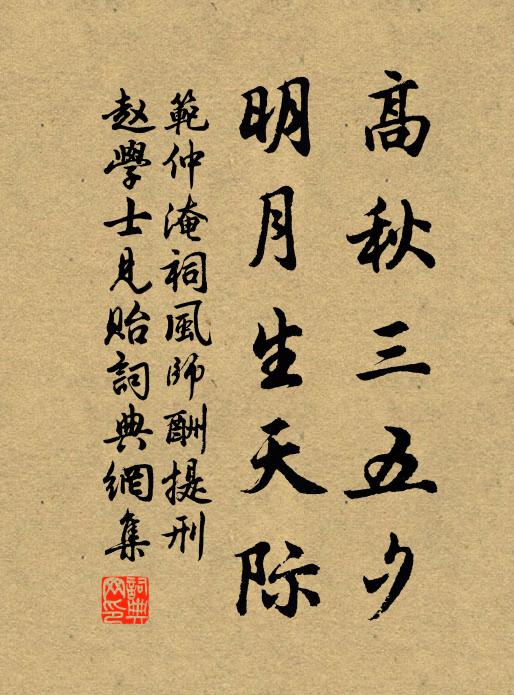 高秋三五夕
明月生天际
範仲淹祠風師酬提刑
赵學士見貽詞典網集
詞典网印